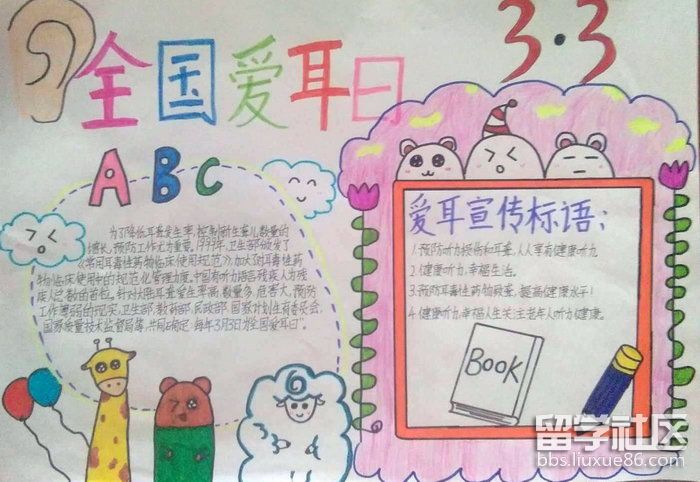 全国爱耳日
3·3
ABC
为了降低耳聋发生率,控制新生聋儿数量的
增长,预防工作尤为重要。1999年,卫生部颁发了
《常用耳毒性药物临床使用规范》,加大对耳毒性药
物临床使用中的规范化管理力度。中国有听力语言残疾人为残
疾人总数的首位。针对我耳聋发生率高,数量多,危害大,预防
工作薄弱的现实,卫生部,教育部,民政部,国家计划生育委员会,
国家质量技术监督局等,共同确定:每年3月3日为全国爱耳日"。
爱耳宣传标语:
1.预防听力损伤和耳聋,人人享有健康听力
2.健康听力,幸福生活。
3.预防耳毒性药物致聋,提高健康水平!
4.健康听力,幸福人生关注老年人听力健康。
BOOK
留学社区
bbs.liuxue86.com